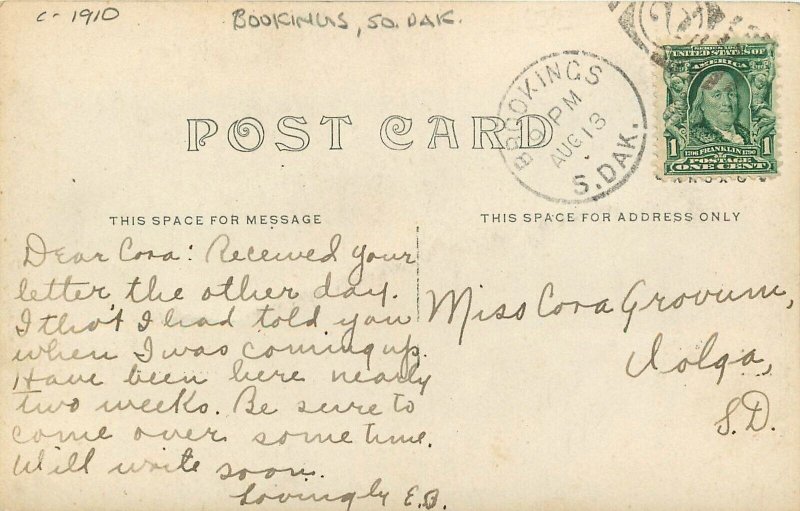 c-1910
BOOKINGS, SO. DAK.
POST CARD
BROOKINGS
PM
AUG 13
S. DAK.
SERIES 1902
UNITED STATES OF
AMERICA
1 1
1706 FRANKLIN 1790
POSTAGE
ONE CENT
THIS SPACE FOR MESSAGE
THIS SPACE FOR ADDRESS ONLY
Dear Cora: Received your
letter the other day.
I tho't I had told you
when I was coming up.
Have been here nearly
two weeks. Be sure to
come over some time.
Will write soon.
Lovingly E.B.
Miss Cora Grovum,
Volga,
S.D.